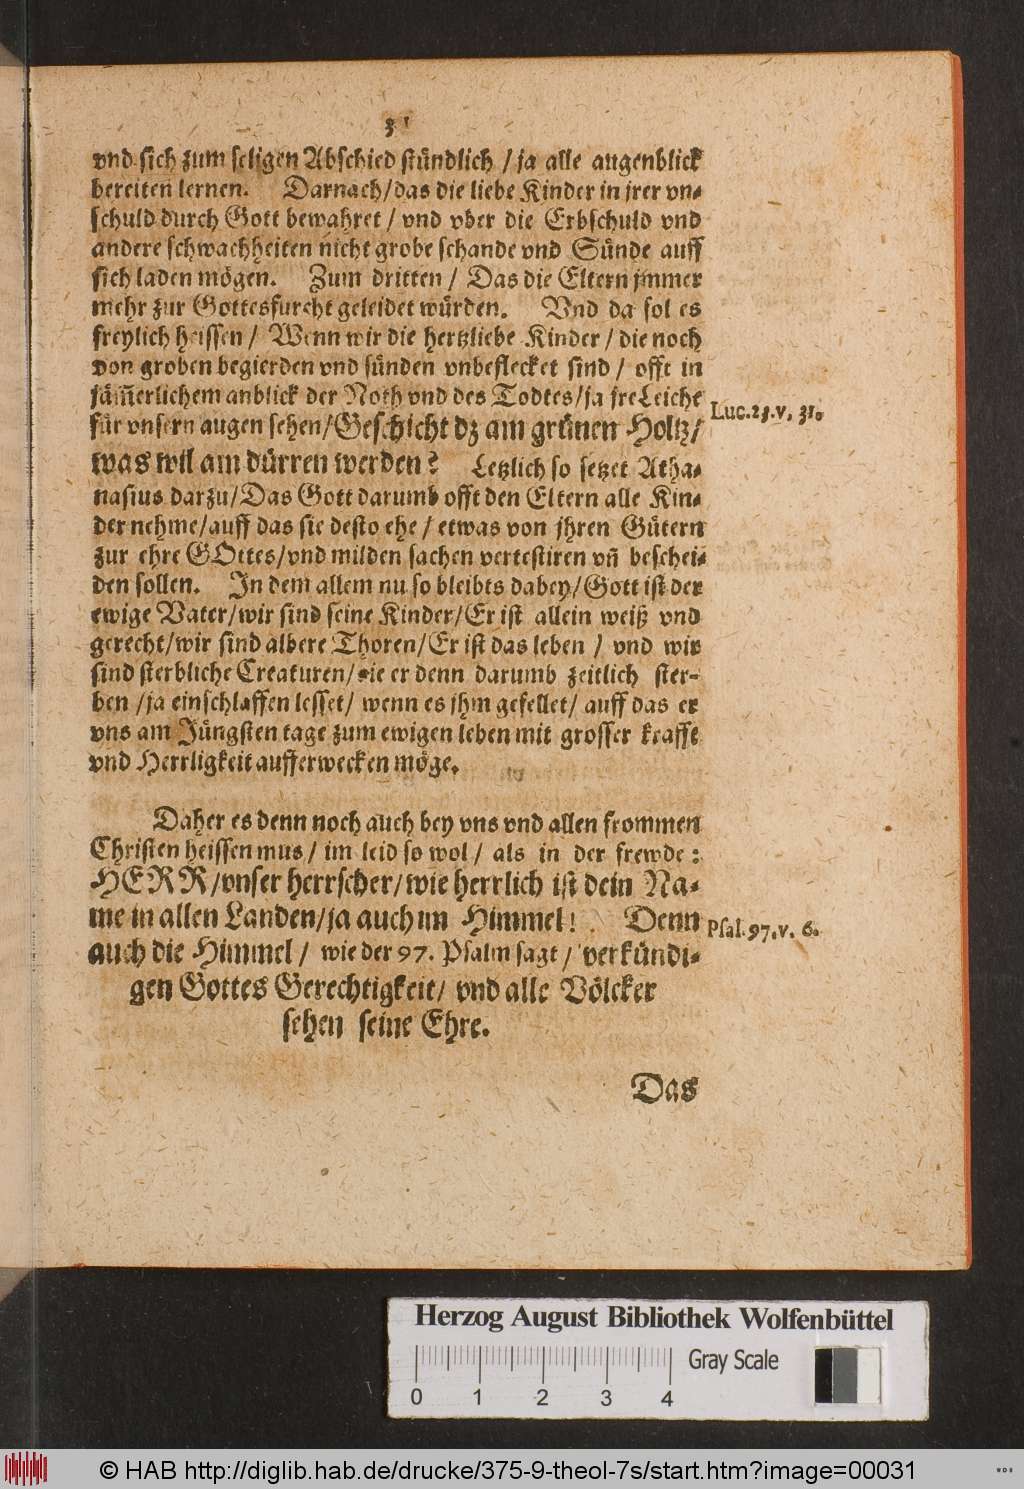 3
vnd sich zum seligen Abschied stündlich / ja alle augenblick
bereiten lernen. Darnach/das die liebe Kinder in jrer vn-
schuld durch Gott bewahret / vnd vber die Erbschuld vnd
andere schwachheiten nicht grobe schande vnd Sünde auff
sich laden mögen. Zum dritten / Das die Eltern jmmer
mehr zur Gottesfurcht geleidet würden. Vnd da sol es
freylich heissen / Wenn wir die hertzliebe Kinder / die noch
von groben begierden vnd sünden vnbeflecket sind / offt in
jäm̃erlichem anblick der Noth vnd des Todtes/ja jre Leiche
für vnsern augen sehen/Geschicht dz am grünen Holtz/
Luc.23.v. 31.
was wil am dürren werden? Letzlich so setzet Atha-
nasius darzu/Das Gott darumb offt den Eltern alle Kin-
der nehme/auff das sie desto ehe / etwas von jhren Gütern
zur ehre GOttes/vnd milden sachen vertestiren vñ beschei-
den sollen. In dem allem nu so bleibts dabey/Gott ist der
ewige Vater/wir sind seine Kinder/Er ist allein weiß vnd
gerecht/wir sind albere Thoren/Er ist das leben / vnd wir
sind sterbliche Creaturen/die er denn darumb zeitlich ster-
ben /ja einschlaffen lesset/ wenn es jhm gefellet/ auff das er
vns am Jüngsten tage zum ewigen leben mit grosser krafft
vnd Herrligkeit aufferwecken möge.
Daher es denn noch auch bey vns vnd allen frommen
Christen heissen mus / im leid so wol / als in der frewde:
HERR/vnser herrscher/wie herrlich ist dein Na-
me in allen Landen/ja auch im Himmel! Denn
Psal.97.v. 6.
auch die Himmel / wie der 97. Psalm sagt / verkündi-
gen Gottes Gerechtigkeit/ vnd alle Völcker
sehen seine Ehre.
Das
Herzog August Bibliothek Wolfenbüttel
Gray Scale
0 1 2 3 4
© HAB http://diglib.hab.de/drucke/375-9-theol-7s/start.htm?image=00031